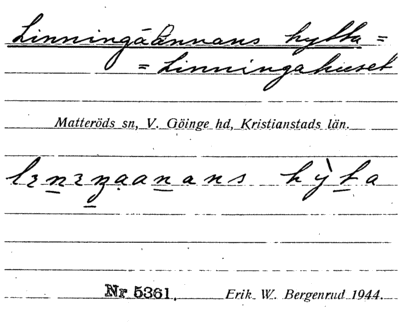 Linningáännans hytta =
= Linningahuset
Matteröds sn, V. Göinge hd, Kristianstads län.
Nr 5361. Erik W. Bergenrud 1944.